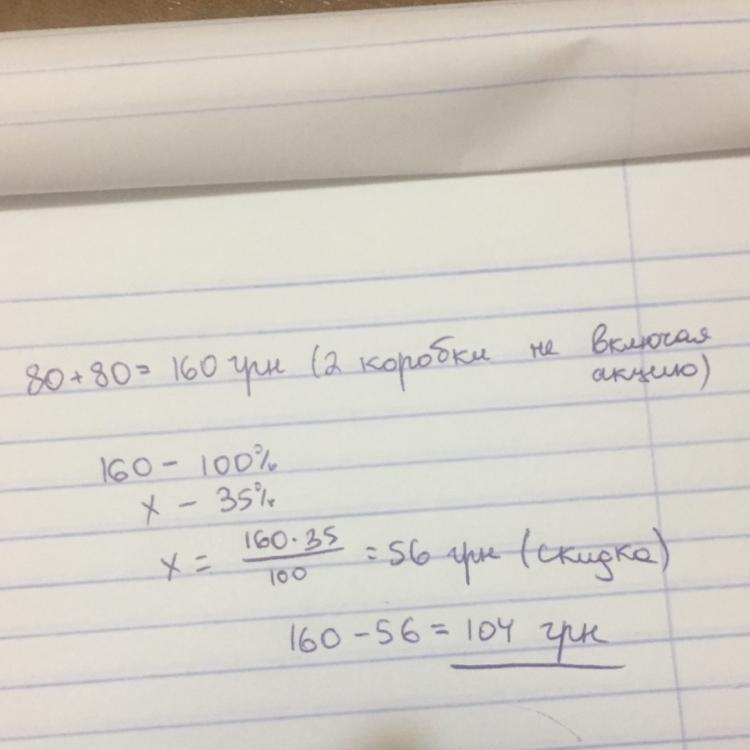 80+80= 160 грн (2 коробки не включая
акцию)
160 - 100%
x - 35%
x = 160·35 / 100 = 56 грн (скидка)
160 - 56 = 104 грн